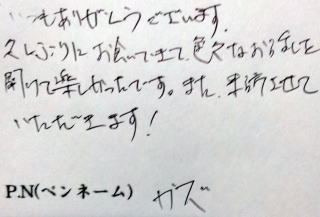 いつもありがとうございます。
久しぶりにお会いできて、色々なお話しを
聞けて楽しかったです。また、来済させて
いただきます!
P.N(ペンネーム) ガズ